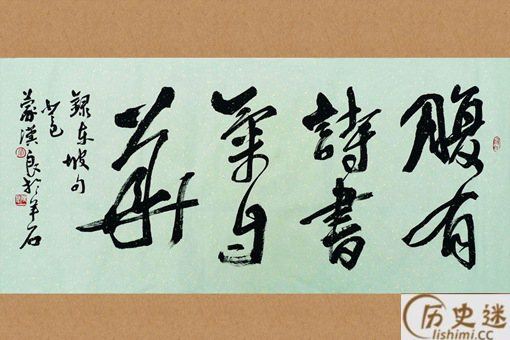 腹有
詩書
氣自
華
録东坡句
蒙漢良於羊石
历史迷
lishimi.cc